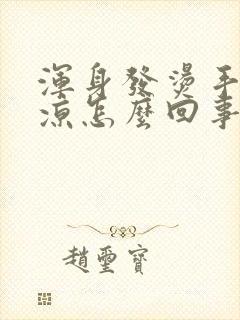 渾身發燙手
涼怎麼回事
趙璽寶